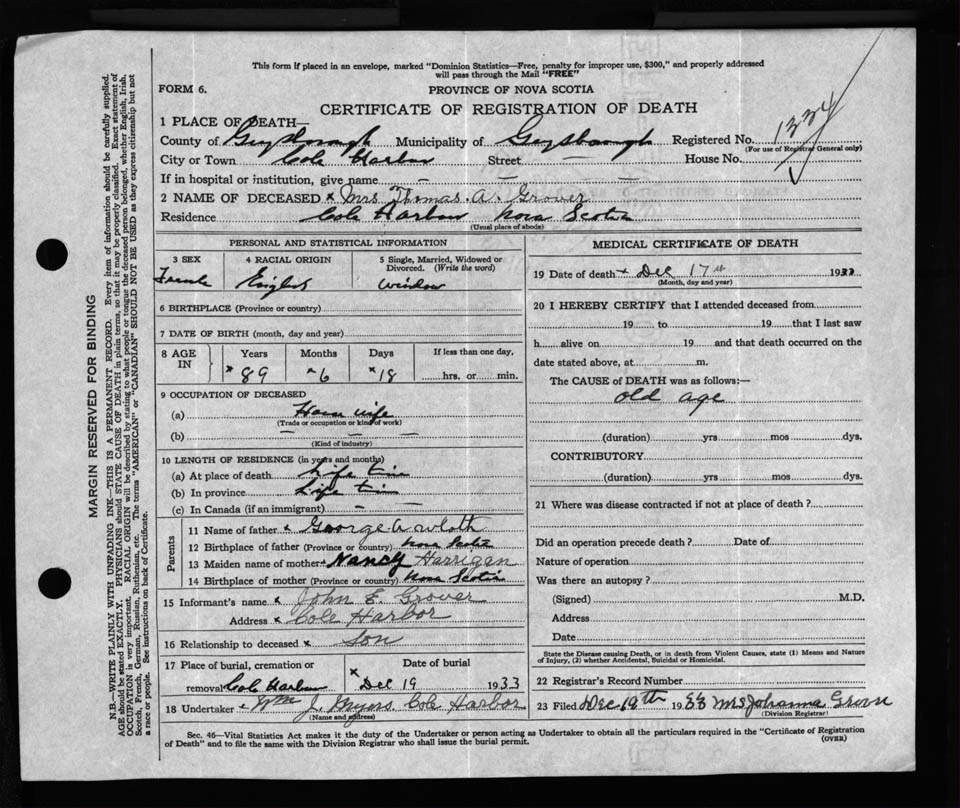 This form if placed in an envelope, marked "Dominion Statistics—Free, penalty for improper use, $300," and properly addressed
will pass through the Mail "FREE"
FORM 6.
PROVINCE OF NOVA SCOTIA
CERTIFICATE OF REGISTRATION OF DEATH
1 PLACE OF DEATH—
County of Guysborough Municipality of Guysborough Registered No. 1334
(For use of Registrar General only)
City or Town Cole Harbor Street — House No.
If in hospital or institution, give name — — —
2 NAME OF DECEASED x Mrs Thomas. A. Grover
Residence Cole Harbour Nova Scotia
(Usual place of abode)
PERSONAL AND STATISTICAL INFORMATION
3 SEX 4 RACIAL ORIGIN 5 Single, Married, Widowed or Divorced. (Write the word)
Female English Widow
6 BIRTHPLACE (Province or country)
7 DATE OF BIRTH (month, day and year)
8 AGE IN Years Months Days If less than one day,
x 89 x 6 x 18 hrs. or min.
9 OCCUPATION OF DECEASED
(a) House wife
(Trade or occupation or kind of work)
(b) — — —
(Kind of industry)
10 LENGTH OF RESIDENCE (in years and months)
(a) At place of death Life time
(b) In province Life time
(c) In Canada (if an immigrant) — —
Parents
11 Name of father x George A
12 Birthplace of father (Province or country) Nova Scotia
13 Maiden name of mother x Nancy Harrigan
14 Birthplace of mother (Province or country) Nova Scotia
15 Informant's name x John E. Grover
Address x Cole Harbor
16 Relationship to deceased x Son
17 Place of burial, cremation or Date of burial
removal Cole Harbour x Dec 19 1933
18 Undertaker x Wm J. Myers Cole Harbor
(Name and address)
MEDICAL CERTIFICATE OF DEATH
19 Date of death x Dec 17th 1933
(Month, day and year)
20 I HEREBY CERTIFY that I attended deceased from
19 to 19 that I last saw
h alive on 19 and that death occurred on the
date stated above, at m.
The CAUSE of DEATH was as follows:—
old age
(duration) yrs mos dys.
CONTRIBUTORY
(duration) yrs mos dys.
21 Where was disease contracted if not at place of death?
Did an operation precede death? Date of
Nature of operation
Was there an autopsy?
(Signed) M.D.
Address
Date
State the Disease causing Death, or in death from Violent Causes, state (1) Means and Nature
of Injury, (2) whether Accidental, Suicidal or Homicidal.
22 Registrar's Record Number
23 Filed Dec 19th 1933 Mrs Johanna
(Division Registrar)
Sec. 46—Vital Statistics Act makes it the duty of the Undertaker or person acting as Undertaker to obtain all the particulars required in the "Certificate of Registration
of Death" and to file the same with the Division Registrar who shall issue the burial permit.
(OVER)
MARGIN RESERVED FOR BINDING
N.B.—WRITE PLAINLY WITH UNFADING INK—THIS IS A PERMANENT RECORD. Every item of information should be carefully supplied.
AGE should be stated EXACTLY. PHYSICIANS should STATE CAUSE OF DEATH in plain terms, so that it may be properly classified. Exact statement of
OCCUPATION is very important. RACIAL ORIGIN will be described by stating to what people or tongue the deceased person belonged, whether English, Irish,
Scotch, French, German, Russian, Ruthenian, etc. The terms "AMERICAN" or "CANADIAN" SHOULD NOT BE USED as they express citizenship but not
a race or people. See instructions on back of Certificate.